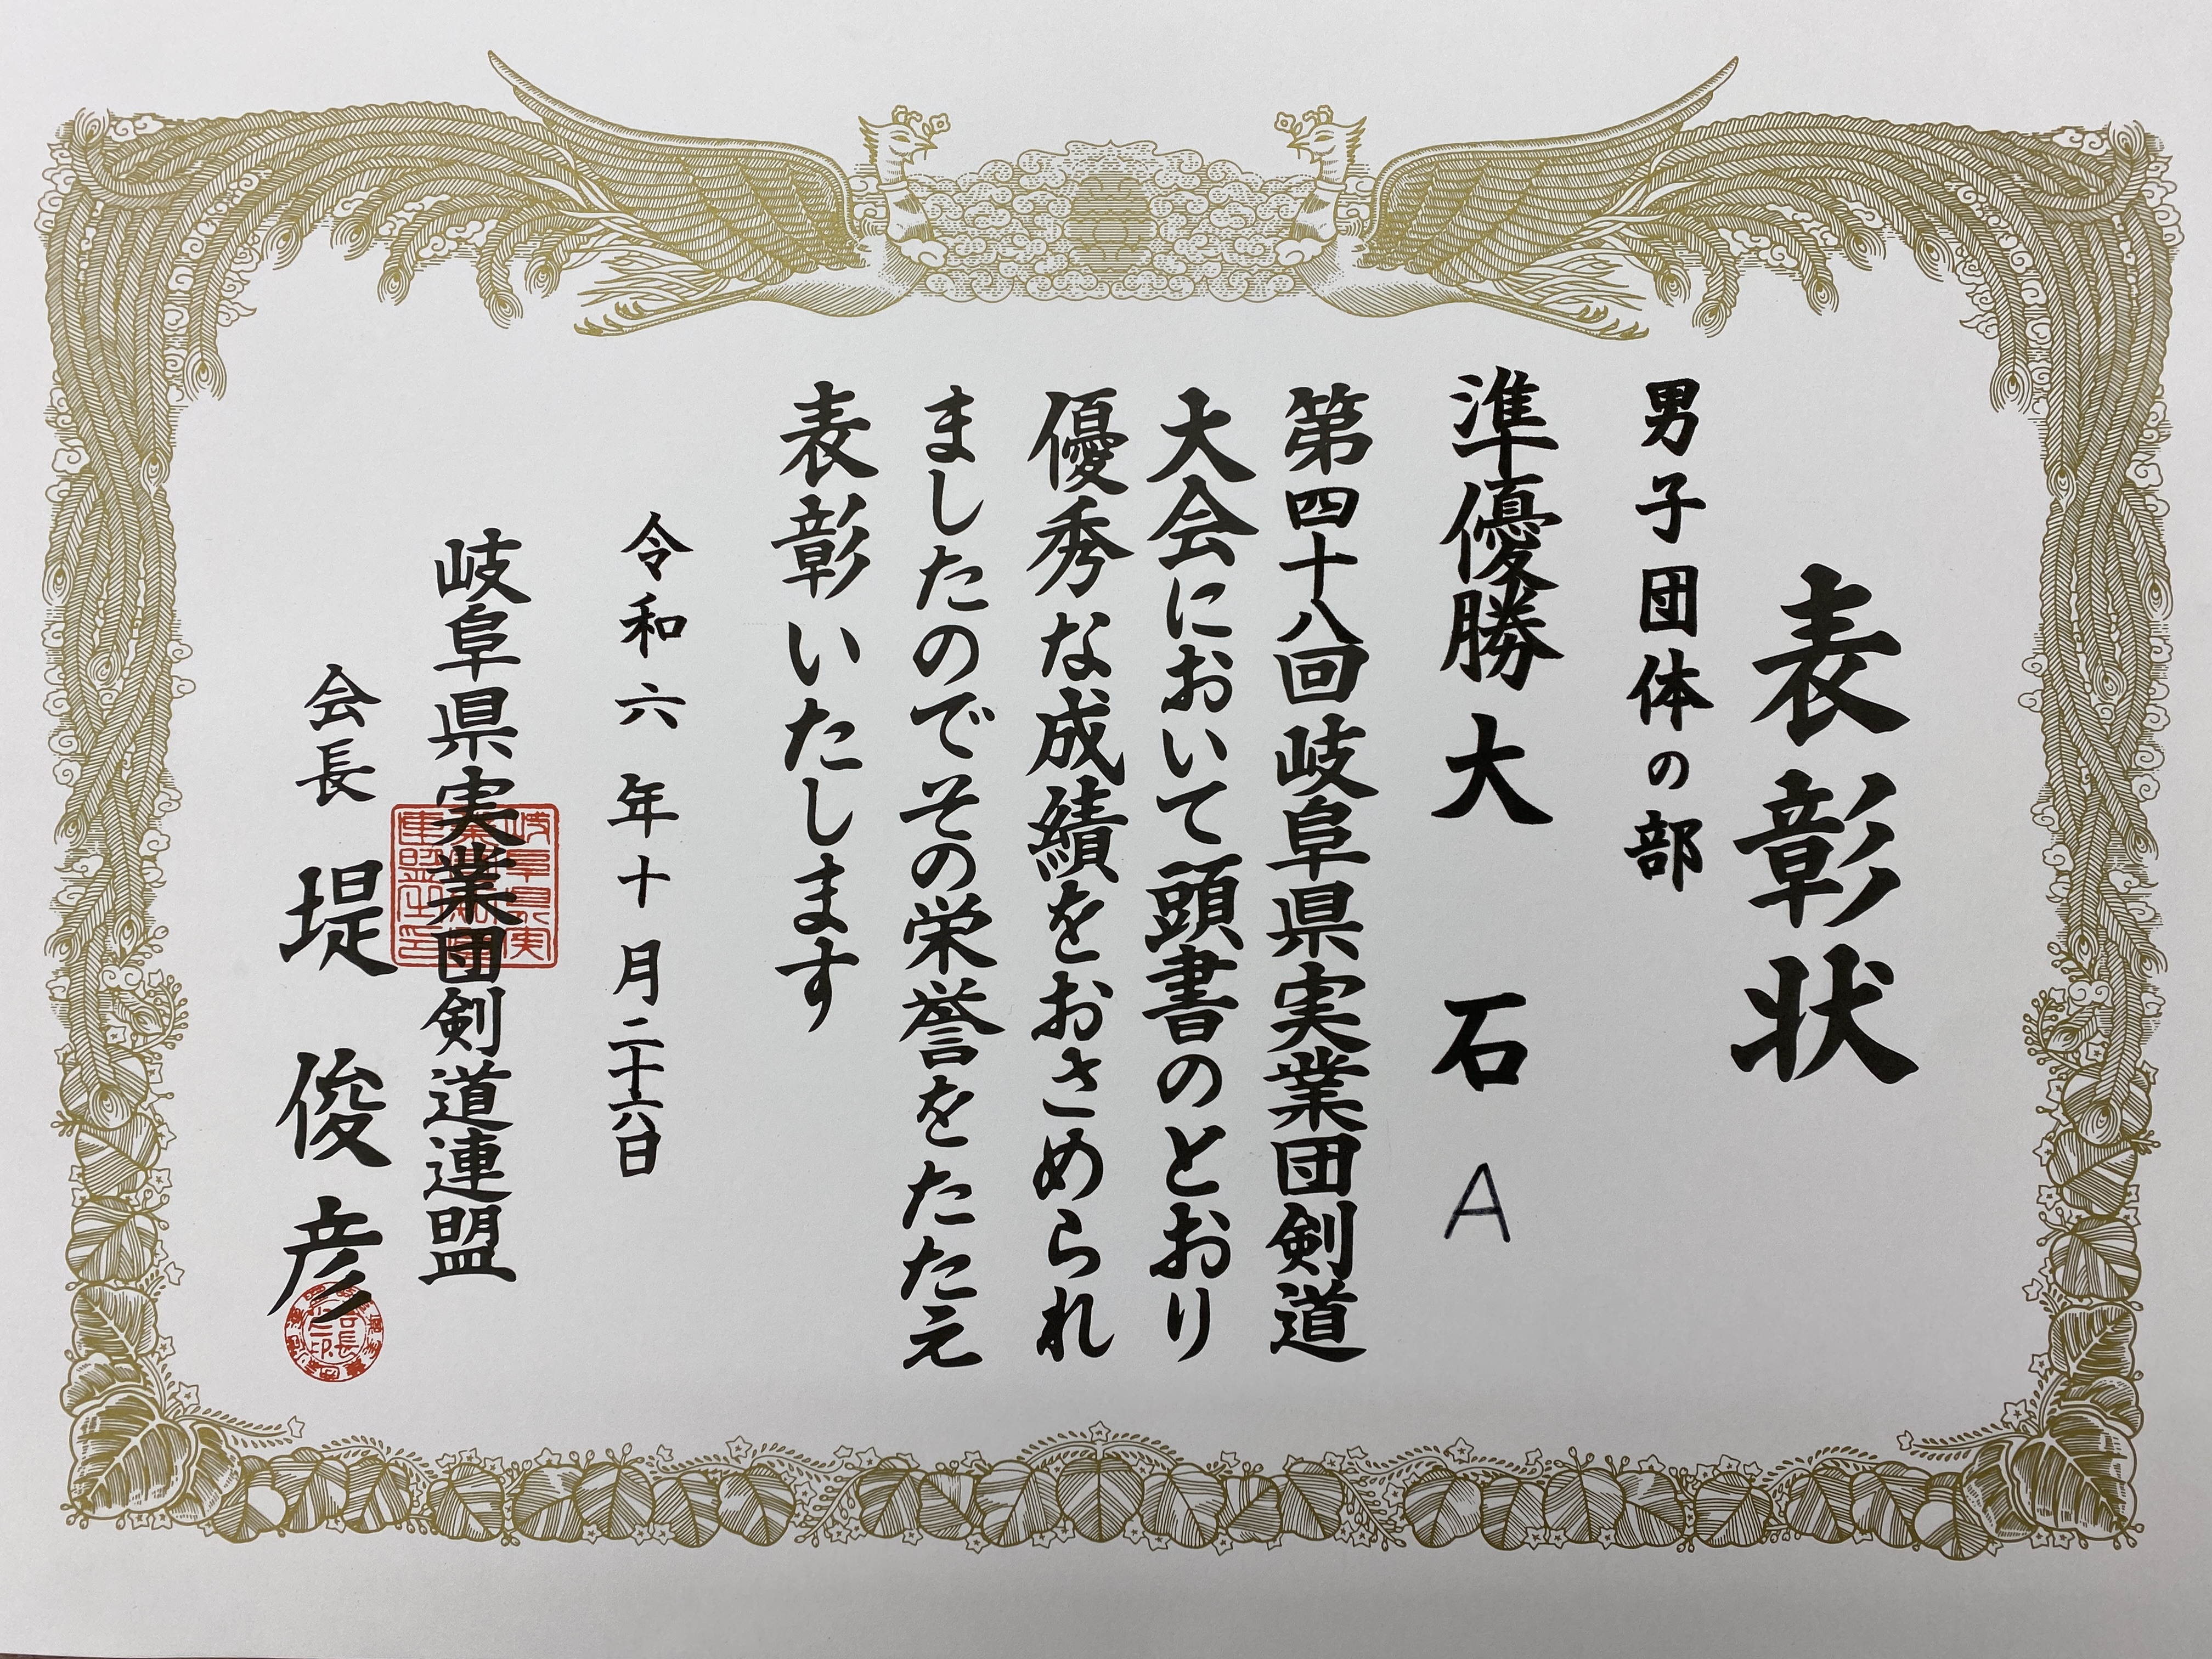 表彰状
男子団体の部
準優勝 大石 A
第四十八回岐阜県実業団剣道
大会において頭書のとおり
優秀な成績をおさめられ
ましたのでその栄誉をたたえ
表彰いたします
令和六年十月二十六日
岐阜県実業団剣道連盟
会長 堤俊彦